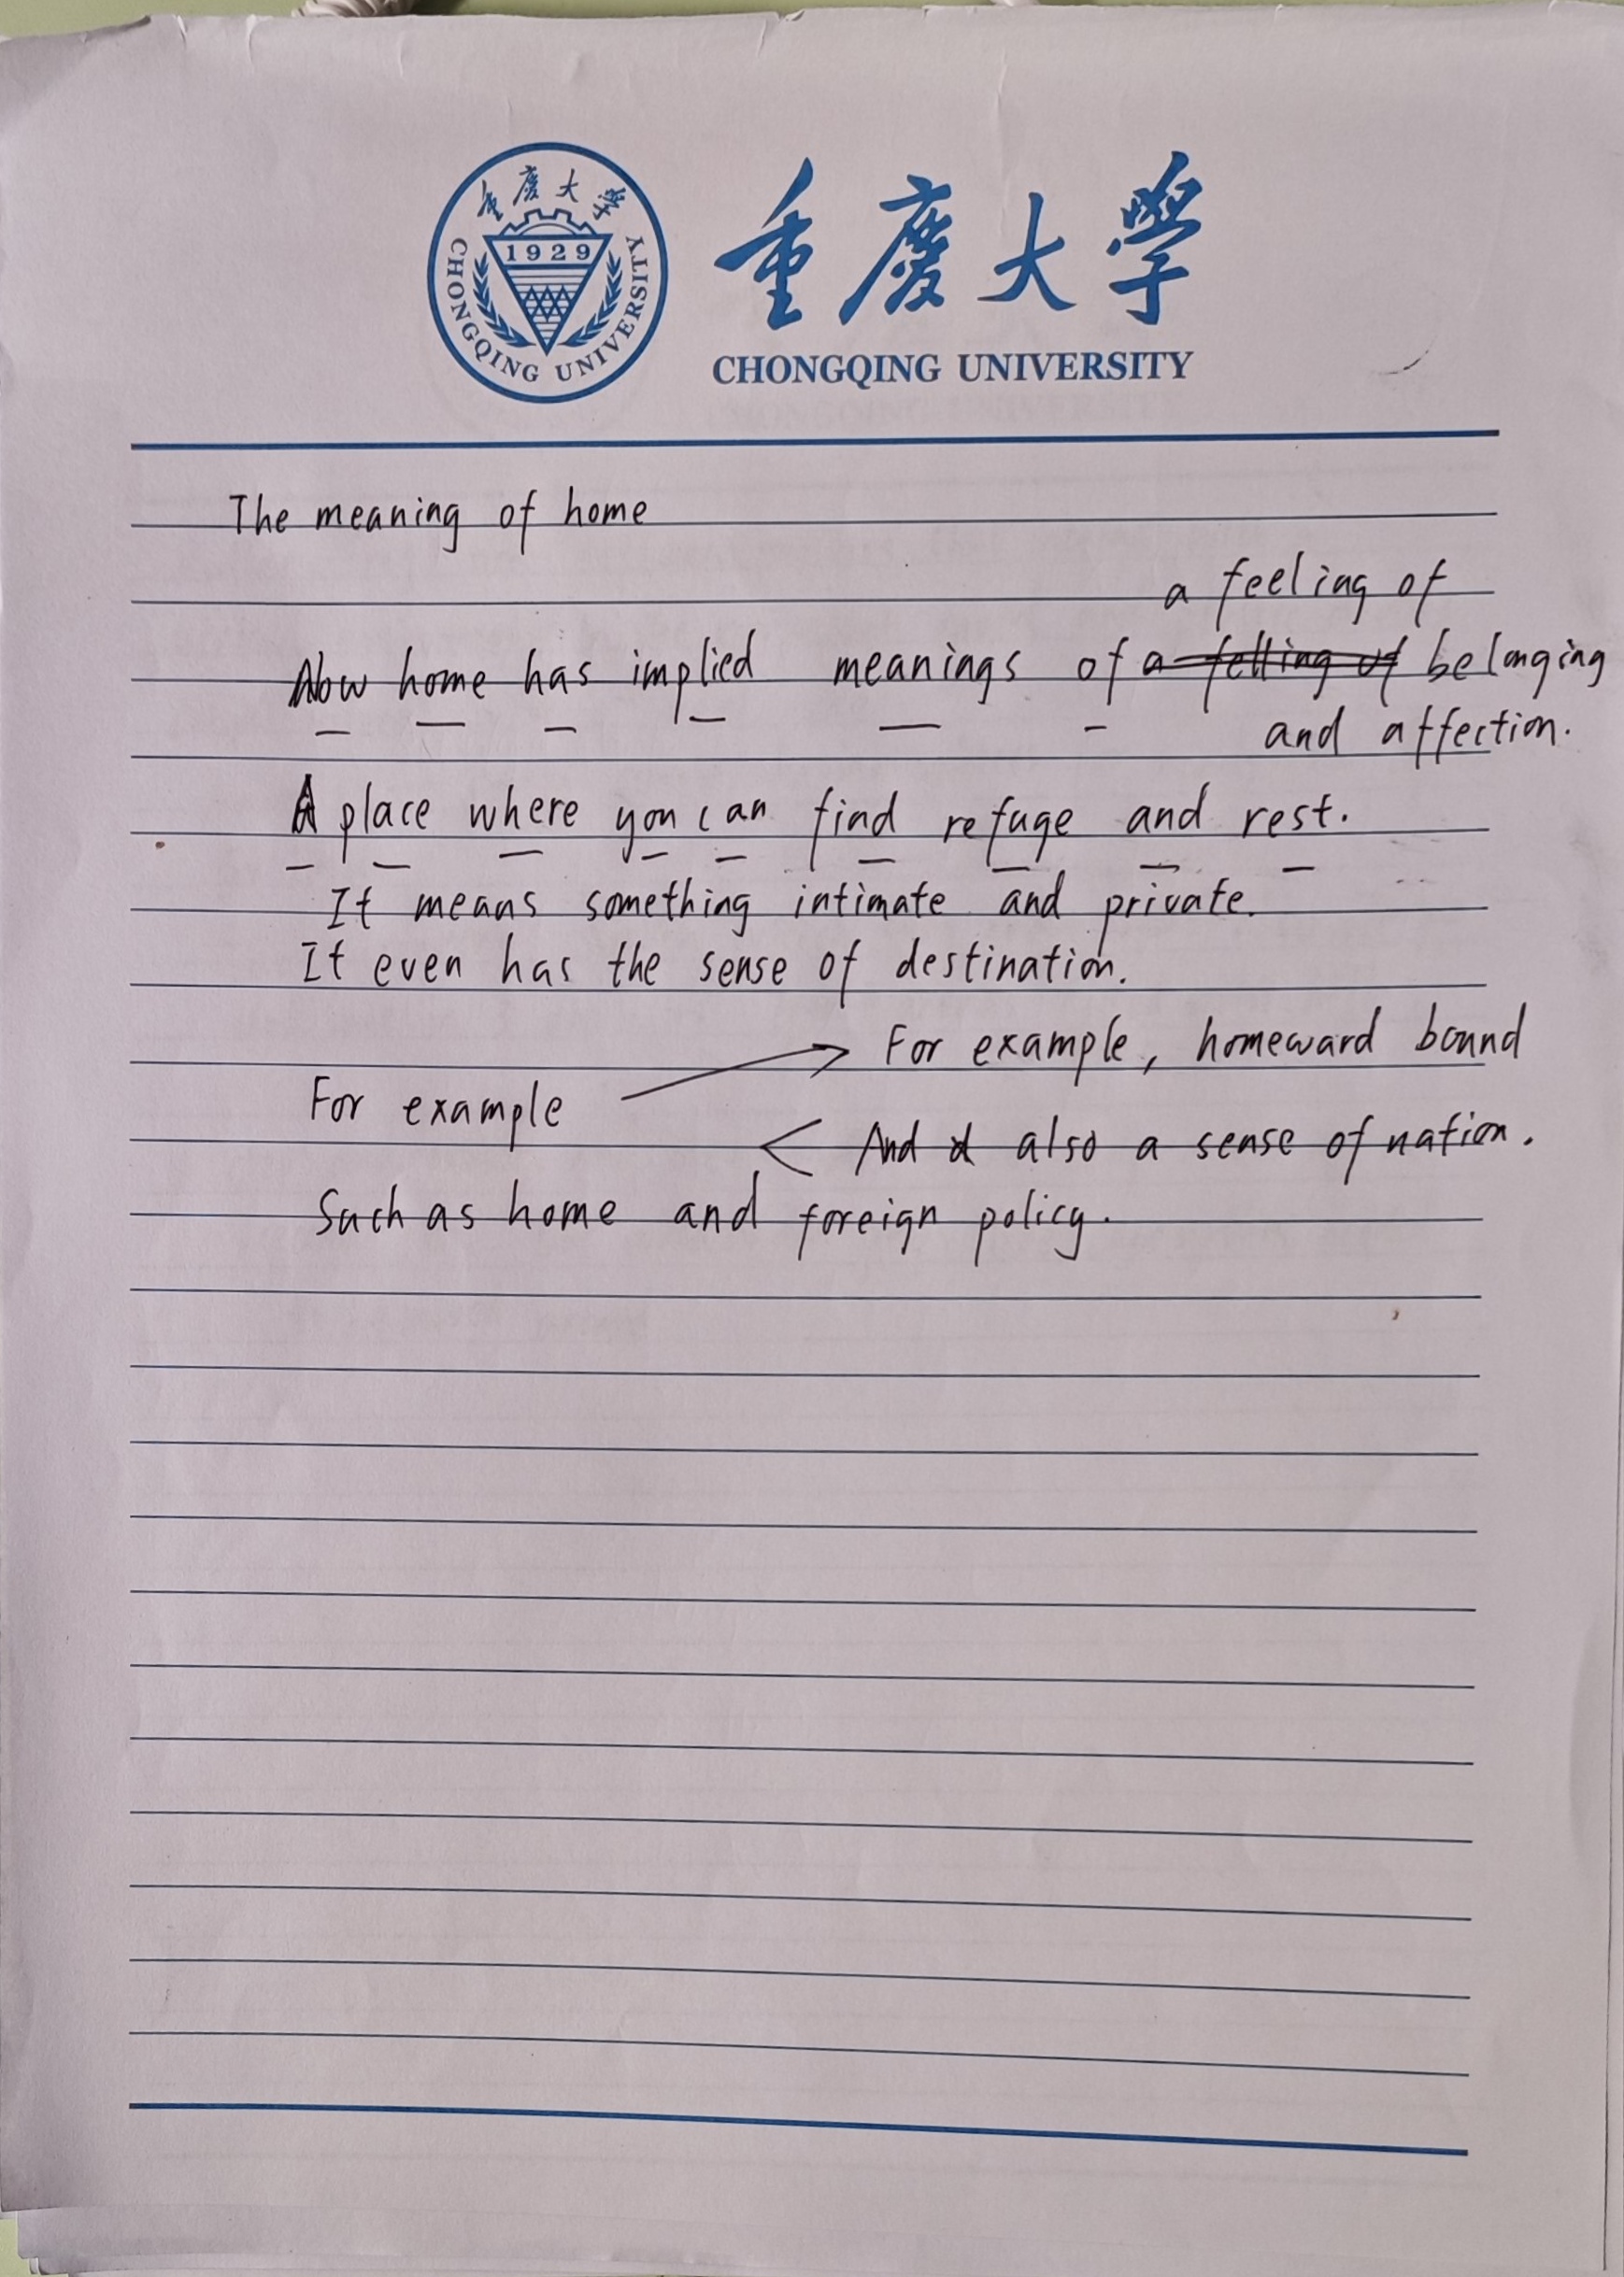 重慶大學
1929
CHONGQING UNIVERSITY
重慶大學
CHONGQING UNIVERSITY
The meaning of home
a feeling of
Now home has implied meanings of a felling of belonging
and affection.
A place where you can find refuge and rest.
It means something intimate and private.
It even has the sense of destination.
For example, homeward bound
For example
And also a sense of nation.
Such as home and foreign policy.